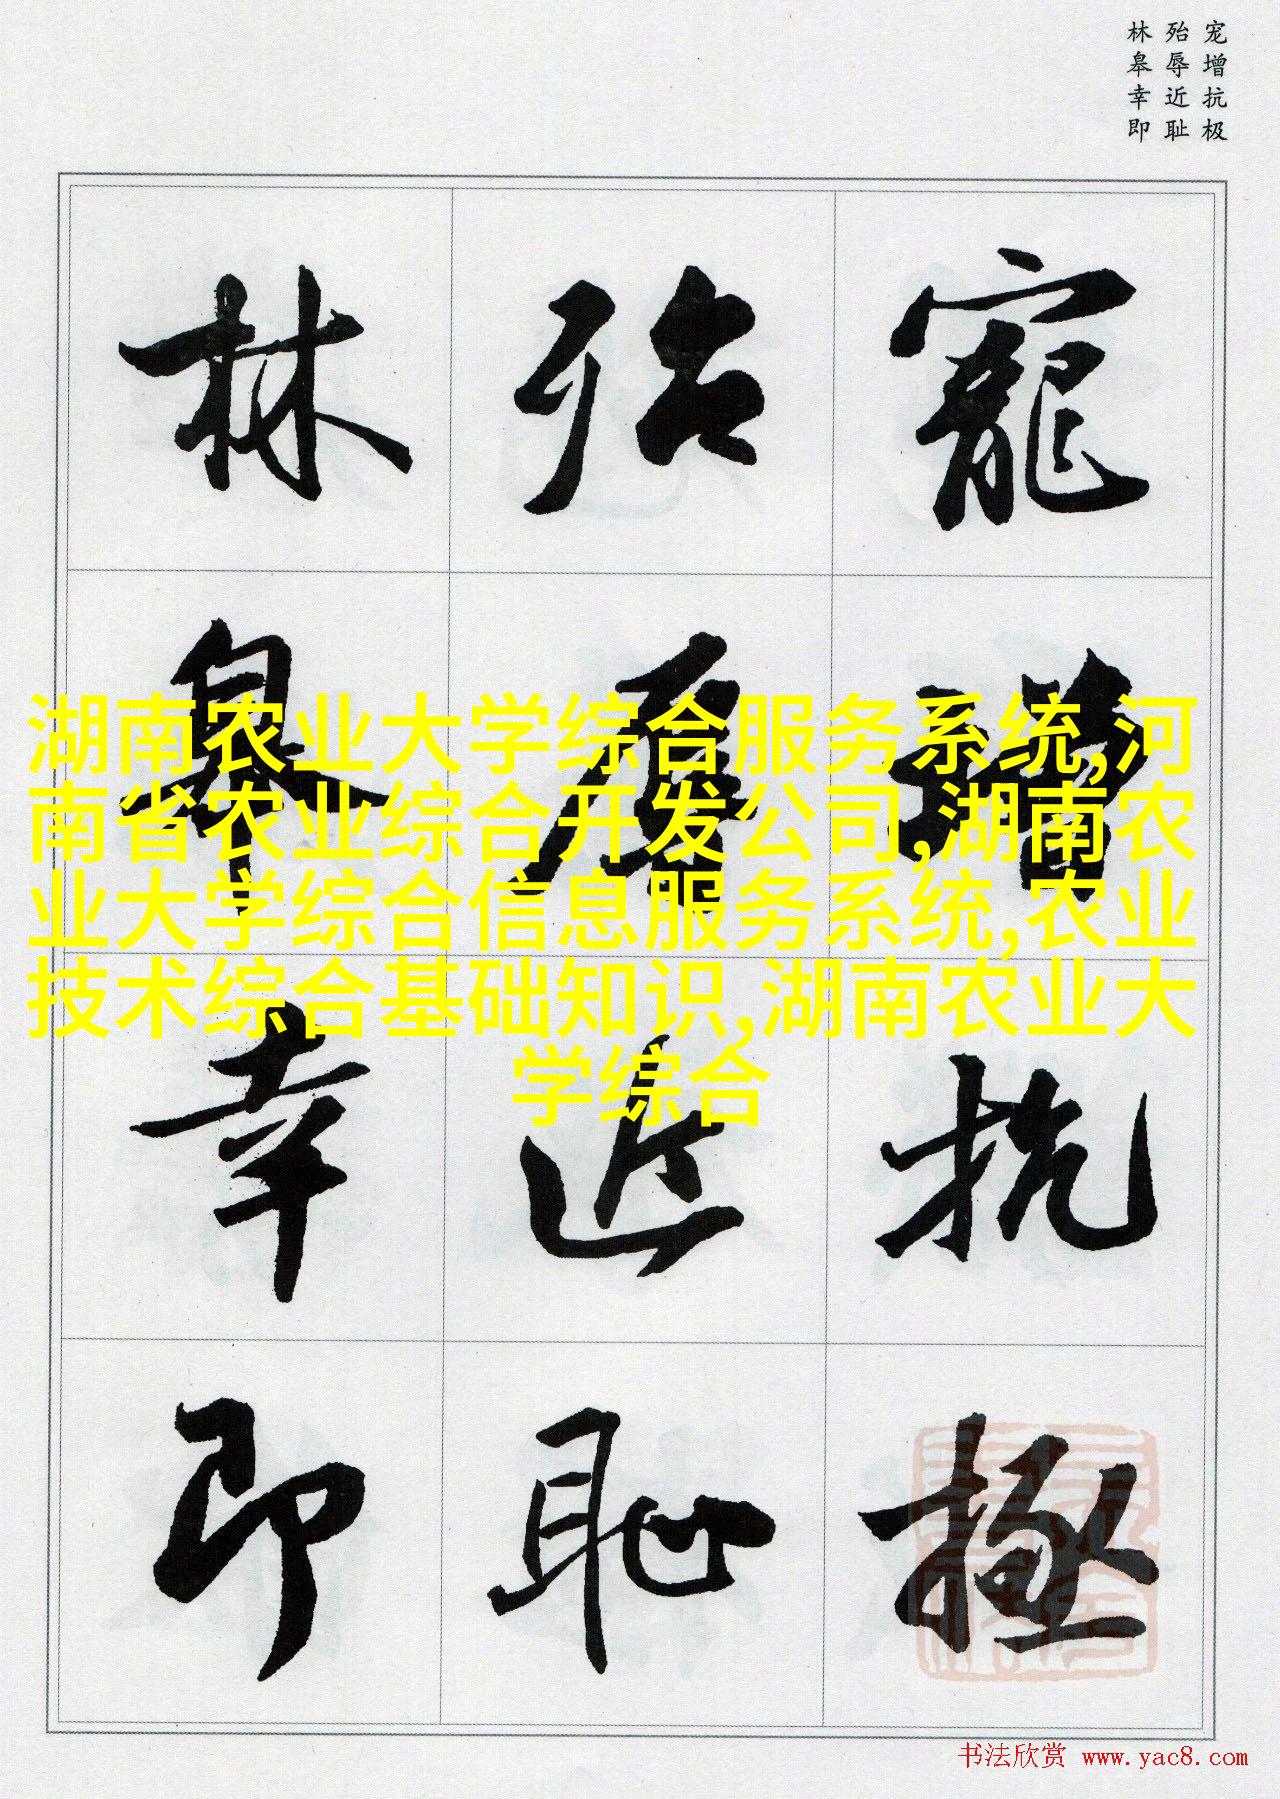 宠增抗极
殆辱近耻
林皋幸即
寵增抗極
殆辱近恥
林皋幸即
湖南农业大学综合服务系统,河
南省农业综合开发公司,湖南农
业大学综合信息服务系统,农业
技术综合基础知识,湖南农业大
学综合
书法欣赏 www.yac8.com